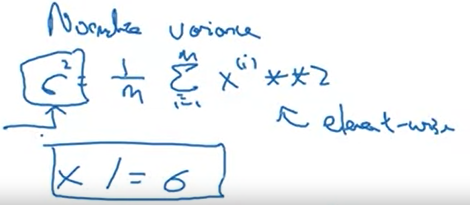 Normalize variance
σ² = 1/m Σ_{i=1}^{m} x^{(i)} ** 2
↖ element-wise
x /= σ